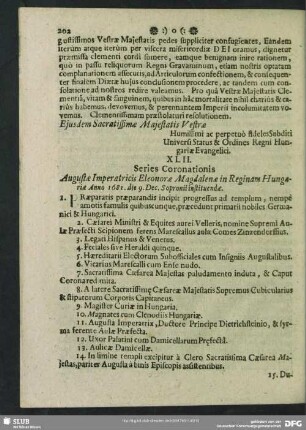 202
gustissimos Vestræ Majestatis pedes suppliciter consuplicatur, Eandem
iterùm atque iterùm per viscera misericordiæ DEI oramur, dignetur
præmissa clementi cordi sumere, eamque benignam inire rationem,
quò in passu reliquorum Regni Gravaminum, etiam nostris optatam
complanationem assecuti, ad Articulorum confectionem, & consequen-
ter finalem Diætæ hujus conclusionem procedere, ac tandem cum con-
solatione ad nostros redire valeamus. Pro quâ Vestræ Majestatis Cle-
mentiâ, vitam & sanguinem, quibus in hâc mortalitate nihil charius & ca-
rius habemus, devovemus, & perennaturum Imperii incolumitatem vo-
vemus. Clementissimam præstolaturi resolutionem.
Ejusdem Sacratissimæ Majestatis Vestræ
Humillimi ac perpetuò fideles Subditi
Universi Status & Ordines Regni Hun-
gariæ Evangelici.
XLII.
Series Coronationis
Augustæ Imperatricis Eleonoræ Magdalenæ in Reginam Hunga-
riæ Anno 1681. die 9. Dec. Sopronii instituendæ.
1. PRæparatis præparandis incipit progressus ad templum, nempè
amotis famulis quibuscunque, præcedunt primariî nobiles Germa-
nici & Hungarici.
2. Cæsarei Ministri & Equites aurei Velleris, nomine Supremi Au-
læ Præfecti Scipionem ferens Marescallus aulæ Comes Zinzendorffius.
3. Legati Hispanus & Venetus.
4. Feciales sive Heroldi quinque.
5. Hæreditarii Electorum Subofficiales cum Insigniis Augustalibus.
6. Vicarius Marescalli cum Ense nudo.
7. Sacratissima Cæsarea Majestas paludamento induta, & Caput
Coronared mita.
8. A latere Sacratissimæ Cæsareæ Majestatis Supremus Cubicularius
& stipatorum Corporis Capitaneus.
9. Magister Curiæ in Hungaria.
10. Magnates cum Clenodiis Hungariæ.
11. Augusta Imperatrix, Ductore Principe Dietrichsteinio, & syr-
ma ferente Aulæ Præfecta.
12. Uxor Palatini cum Damicellarum Præfectâ.
13. Aulicæ Damicellæ.
14. In limine templi excipitur à Clero Sacratissima Cæsarea Ma-
jestas, pariter Augusta à binis Episcopis assistentibus.
15. Du-